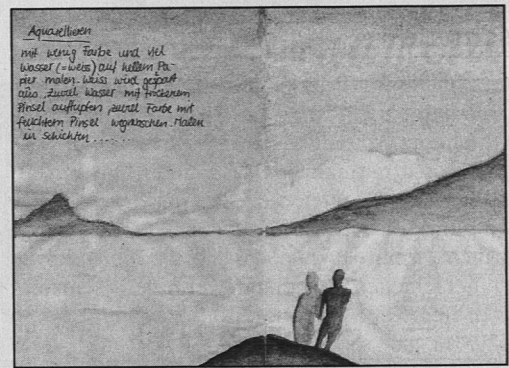 Aquarellieren
mit wenig Farbe und viel
Wasser (=weiss) auf hellem Pa-
pier malen. Weiss wird gespart
aus. Zuviel Wasser mit trockenem
Pinsel auftupfen, zuviel Farbe mit
feuchtem Pinsel wegwaschen. Malen
in Schichten......